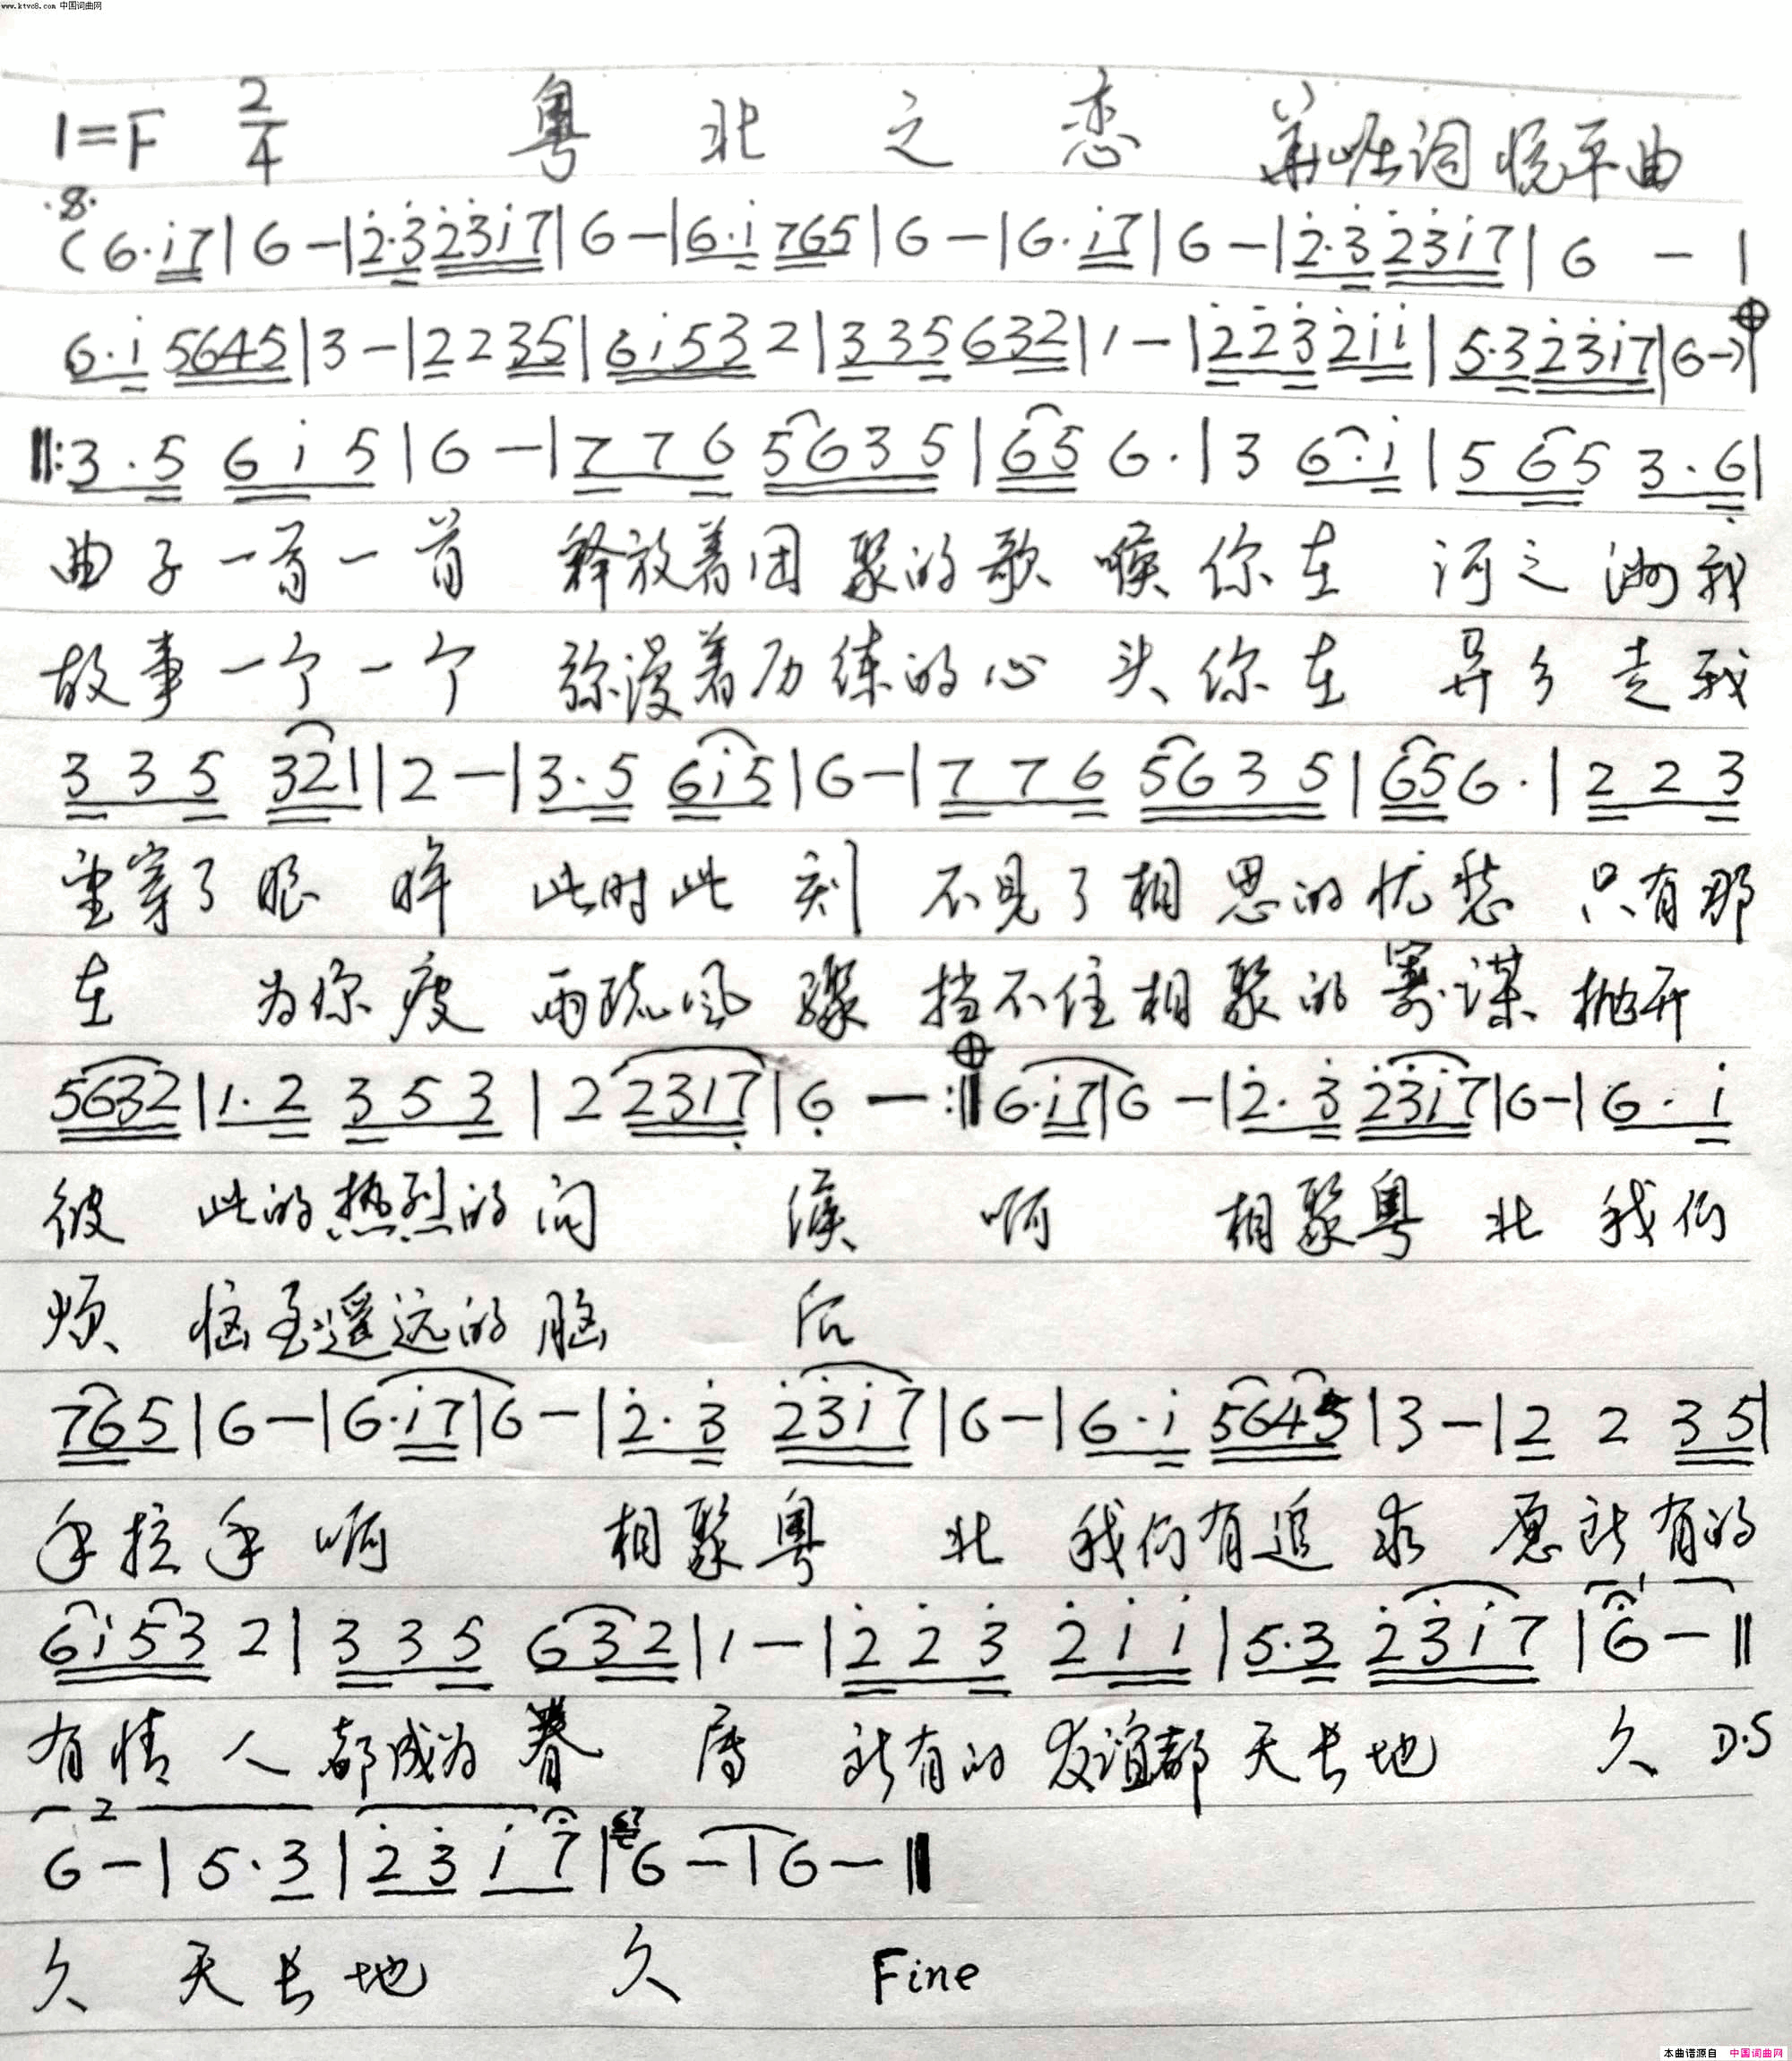 www.ktvc8.com 中国词曲网
1=F 2/4 粤北之恋 词 悦平曲
(6·i7|6-|2·3 23i7|6-|6·i 765|6-|6·i7|6-|2·3 23i7|6-|
6·i 5645|3-|2 2 35|6i53 2|335 632|1-|223 2ii|5·3 23i7|6-)|
‖:3·5 6i5|6-|776 5635|65 6·|3 6·i|565 3·6|
曲子一首一首 释放着团聚的歌喉你在 河之洲我
故事一个一个 弥漫着历练的心头你在 异乡走我
335 321|2-|3·5 6i5|6-|776 5635|65 6·|223
望穿了眼眸 此时此刻 不见了相思的忧愁 只有那
在 为你疲 雨疏风骤 挡不住相聚的 谋 抛开
5632|1·2 353|2 2317|6-:‖6·i7|6-|2·3 23i7|6-|6·i
彼此的热烈的问候 啊 相聚粤北 我们
烦恼至遥远的脑后
765|6-|6·i7|6-|2·3 23i7|6-|6·i 5645|3-|2 2 35|
手拉手 啊 相聚粤北 我们有追求 愿所有的
6i53 2|335 632|1-|223 2ii|5·3 23i7|6-‖
有情人都成为眷属 所有的友谊都天长地久 D.S
6-|5·3|23 i7|67 6-|6-‖
久 天长地久 Fine
本曲谱源自 中国词曲网